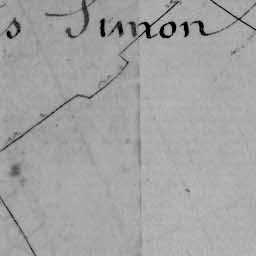 s Simon